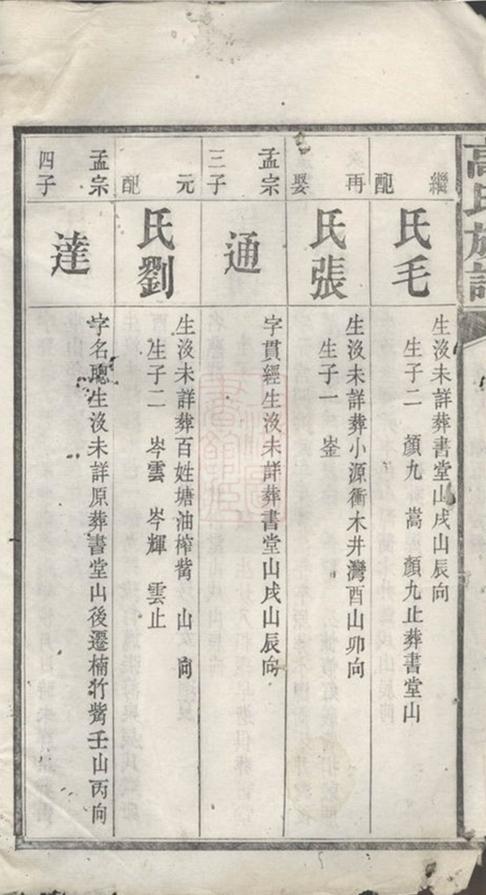 高氏族譜
繼配
毛氏
生没未詳葬書堂山戌山辰向
生子二 顏九 嵩 顏九止葬書堂山
再娶
張氏
生没未詳葬小源衝木井灣酉山卯向
生子一 崟
孟宗三子
通
字貫經生没未詳葬書堂山戌山辰向
元配
劉氏
生没未詳葬百姓塘油榨嘴 山 向
生子二 岑雲 岑輝 雲止
孟宗四子
達
字名聰生没未詳原葬書堂山後遷楠竹嘴壬山丙向